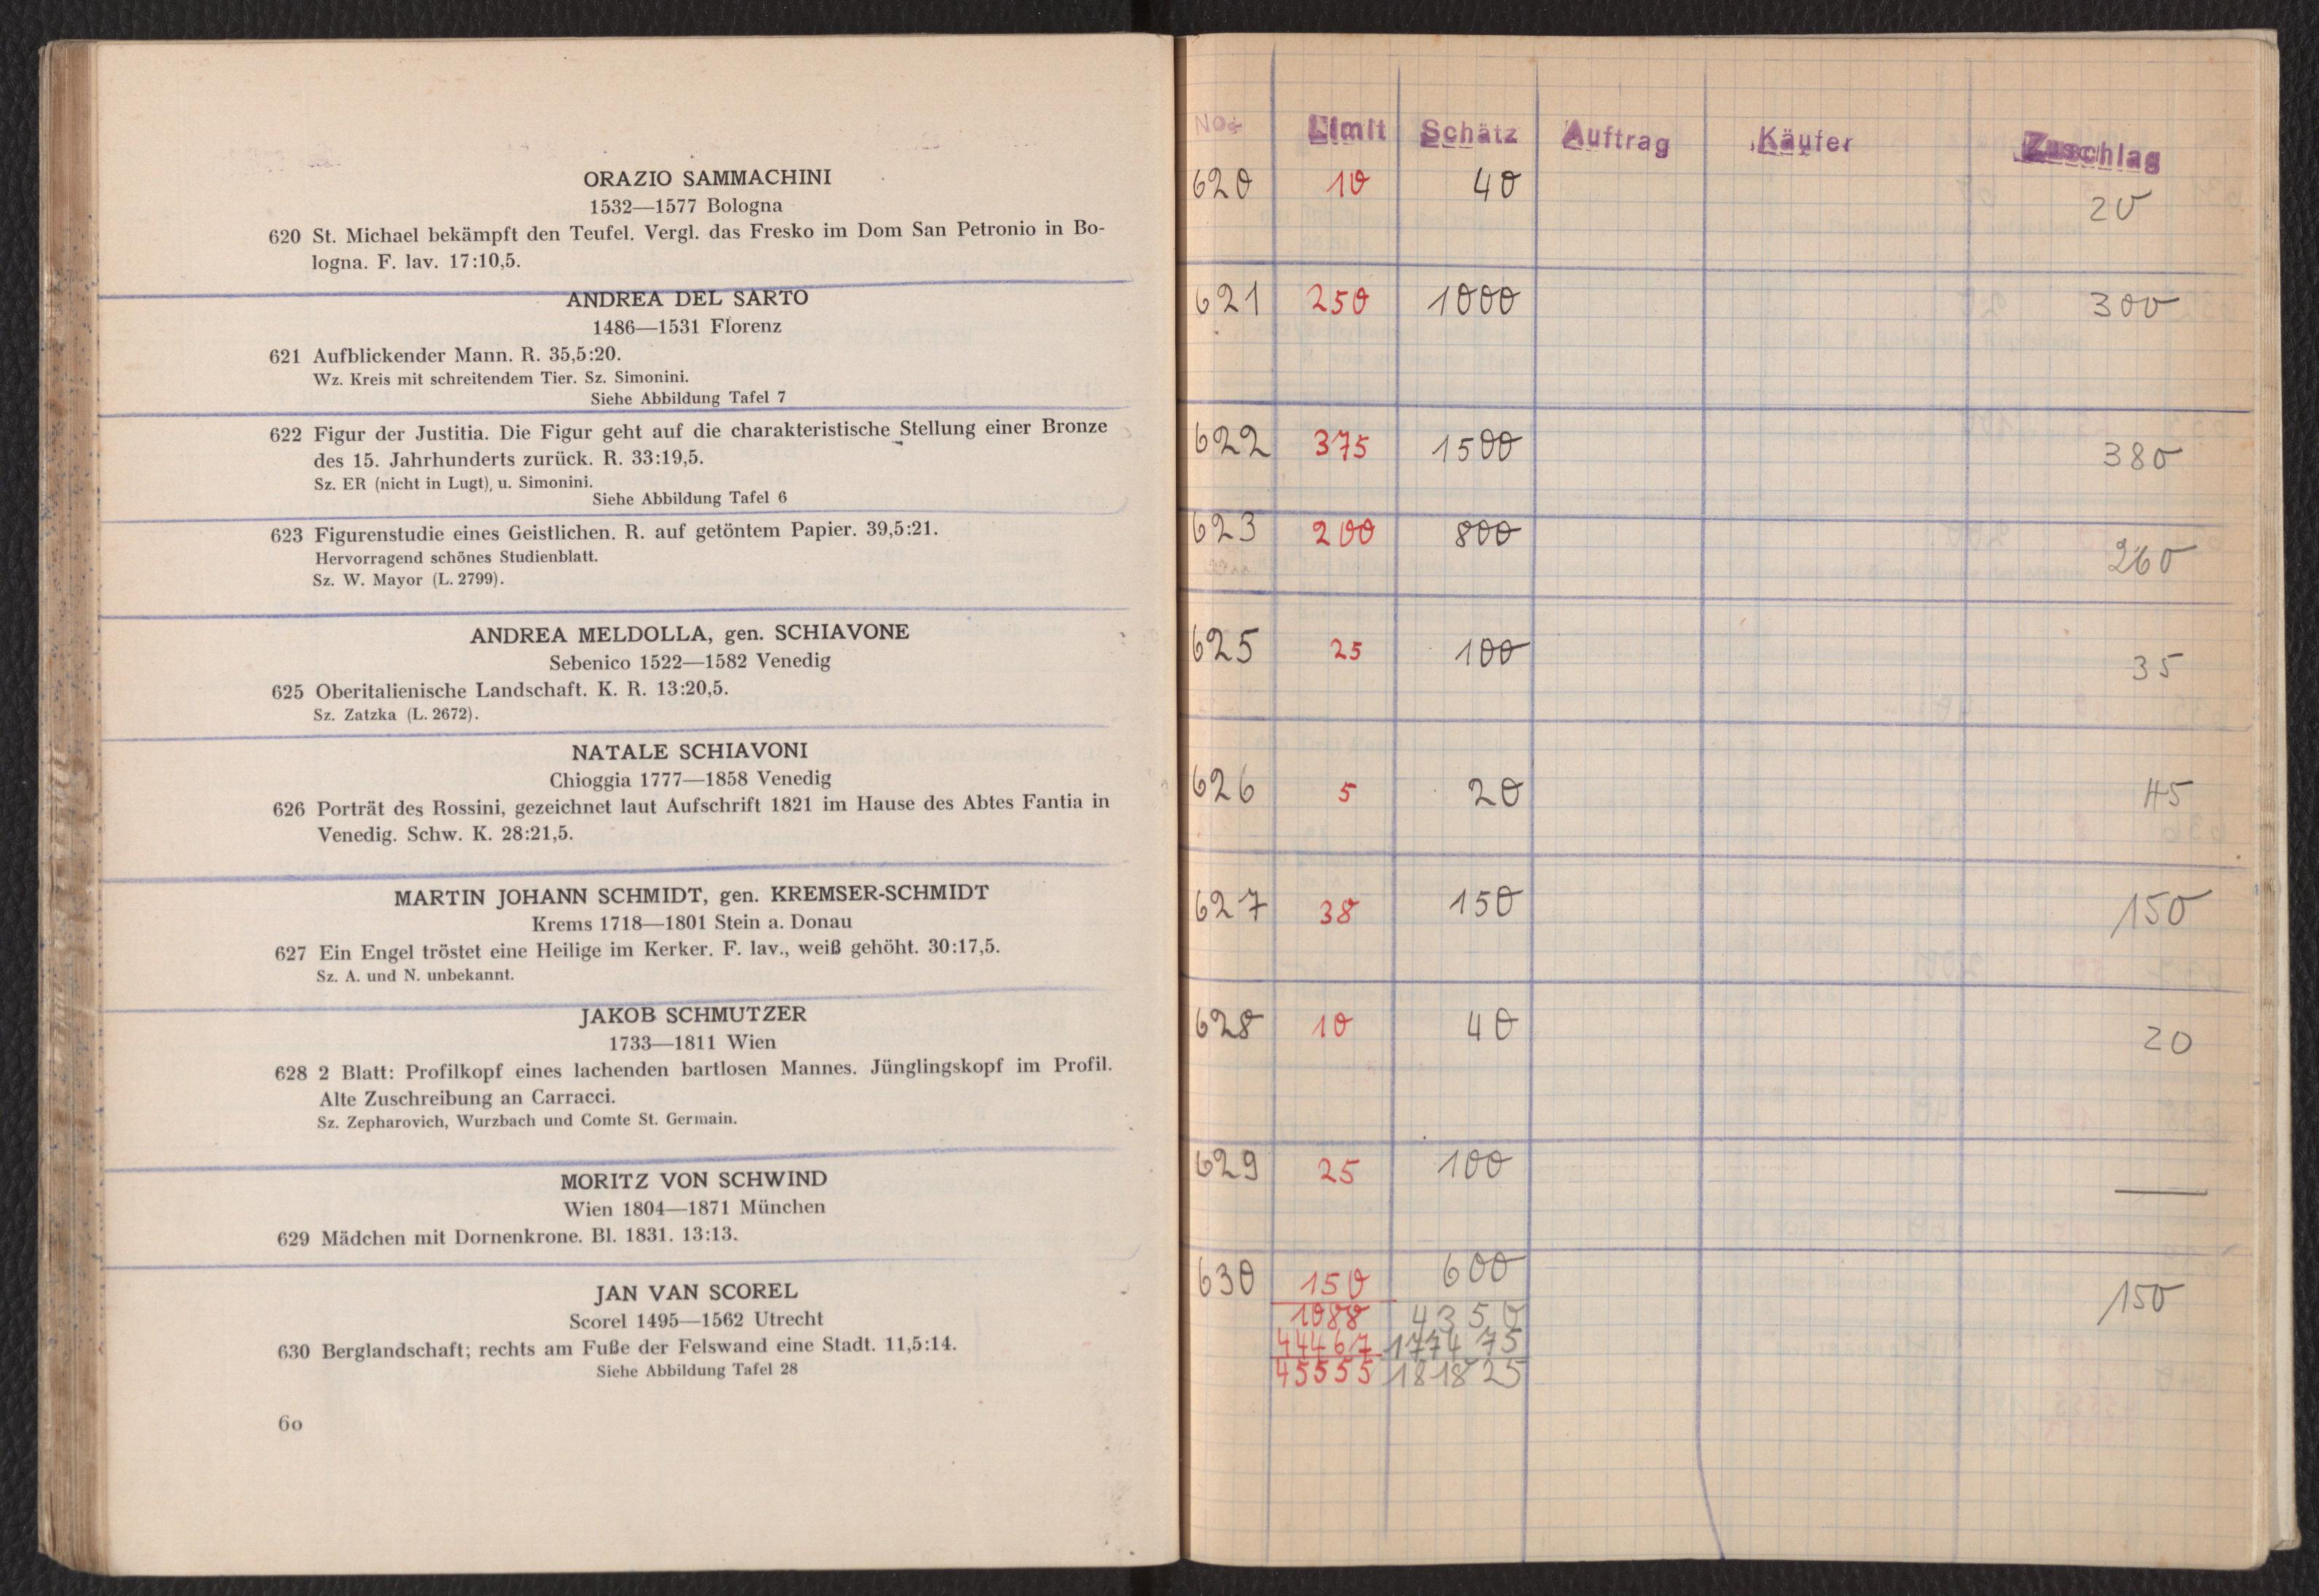 ORAZIO SAMMACHINI
1532—1577 Bologna
620 St. Michael bekämpft den Teufel. Vergl. das Fresko im Dom San Petronio in Bo-
logna. F. lav. 17:10,5.
ANDREA DEL SARTO
1486—1531 Florenz
621 Aufblickender Mann. R. 35,5:20.
Wz. Kreis mit schreitendem Tier. Sz. Simonini.
Siehe Abbildung Tafel 7
622 Figur der Justitia. Die Figur geht auf die charakteristische Stellung einer Bronze
des 15. Jahrhunderts zurück. R. 33:19,5.
Sz. ER (nicht in Lugt), u. Simonini.
Siehe Abbildung Tafel 6
623 Figurenstudie eines Geistlichen. R. auf getöntem Papier. 39,5:21.
Hervorragend schönes Studienblatt.
Sz. W. Mayor (L. 2799).
ANDREA MELDOLLA, gen. SCHIAVONE
Sebenico 1522—1582 Venedig
625 Oberitalienische Landschaft. K. R. 13:20,5.
Sz. Zatzka (L. 2672).
NATALE SCHIAVONI
Chioggia 1777—1858 Venedig
626 Porträt des Rossini, gezeichnet laut Aufschrift 1821 im Hause des Abtes Fantia in
Venedig. Schw. K. 28:21,5.
MARTIN JOHANN SCHMIDT, gen. KREMSER-SCHMIDT
Krems 1718—1801 Stein a. Donau
627 Ein Engel tröstet eine Heilige im Kerker. F. lav., weiß gehöht. 30:17,5.
Sz. A. und N. unbekannt.
JAKOB SCHMUTZER
1733—1811 Wien
628 2 Blatt: Profilkopf eines lachenden bartlosen Mannes. Jünglingskopf im Profil.
Alte Zuschreibung an Carracci.
Sz. Zepharovich, Wurzbach und Comte St. Germain.
MORITZ VON SCHWIND
Wien 1804—1871 München
629 Mädchen mit Dornenkrone. Bl. 1831. 13:13.
JAN VAN SCOREL
Scorel 1495—1562 Utrecht
630 Berglandschaft; rechts am Fuße der Felswand eine Stadt. 11,5:14.
Siehe Abbildung Tafel 28
60
Limit Schätz Auftrag Käufer Zuschlag
620 10 40 20
621 250 1000 300
622 375 1500 380
623 200 800 260
625 25 100 35
626 5 20 45
627 38 150 150
628 10 40 20
629 25 100 —
630 150 600 150
1088 4350
44467 177475
45555 181825